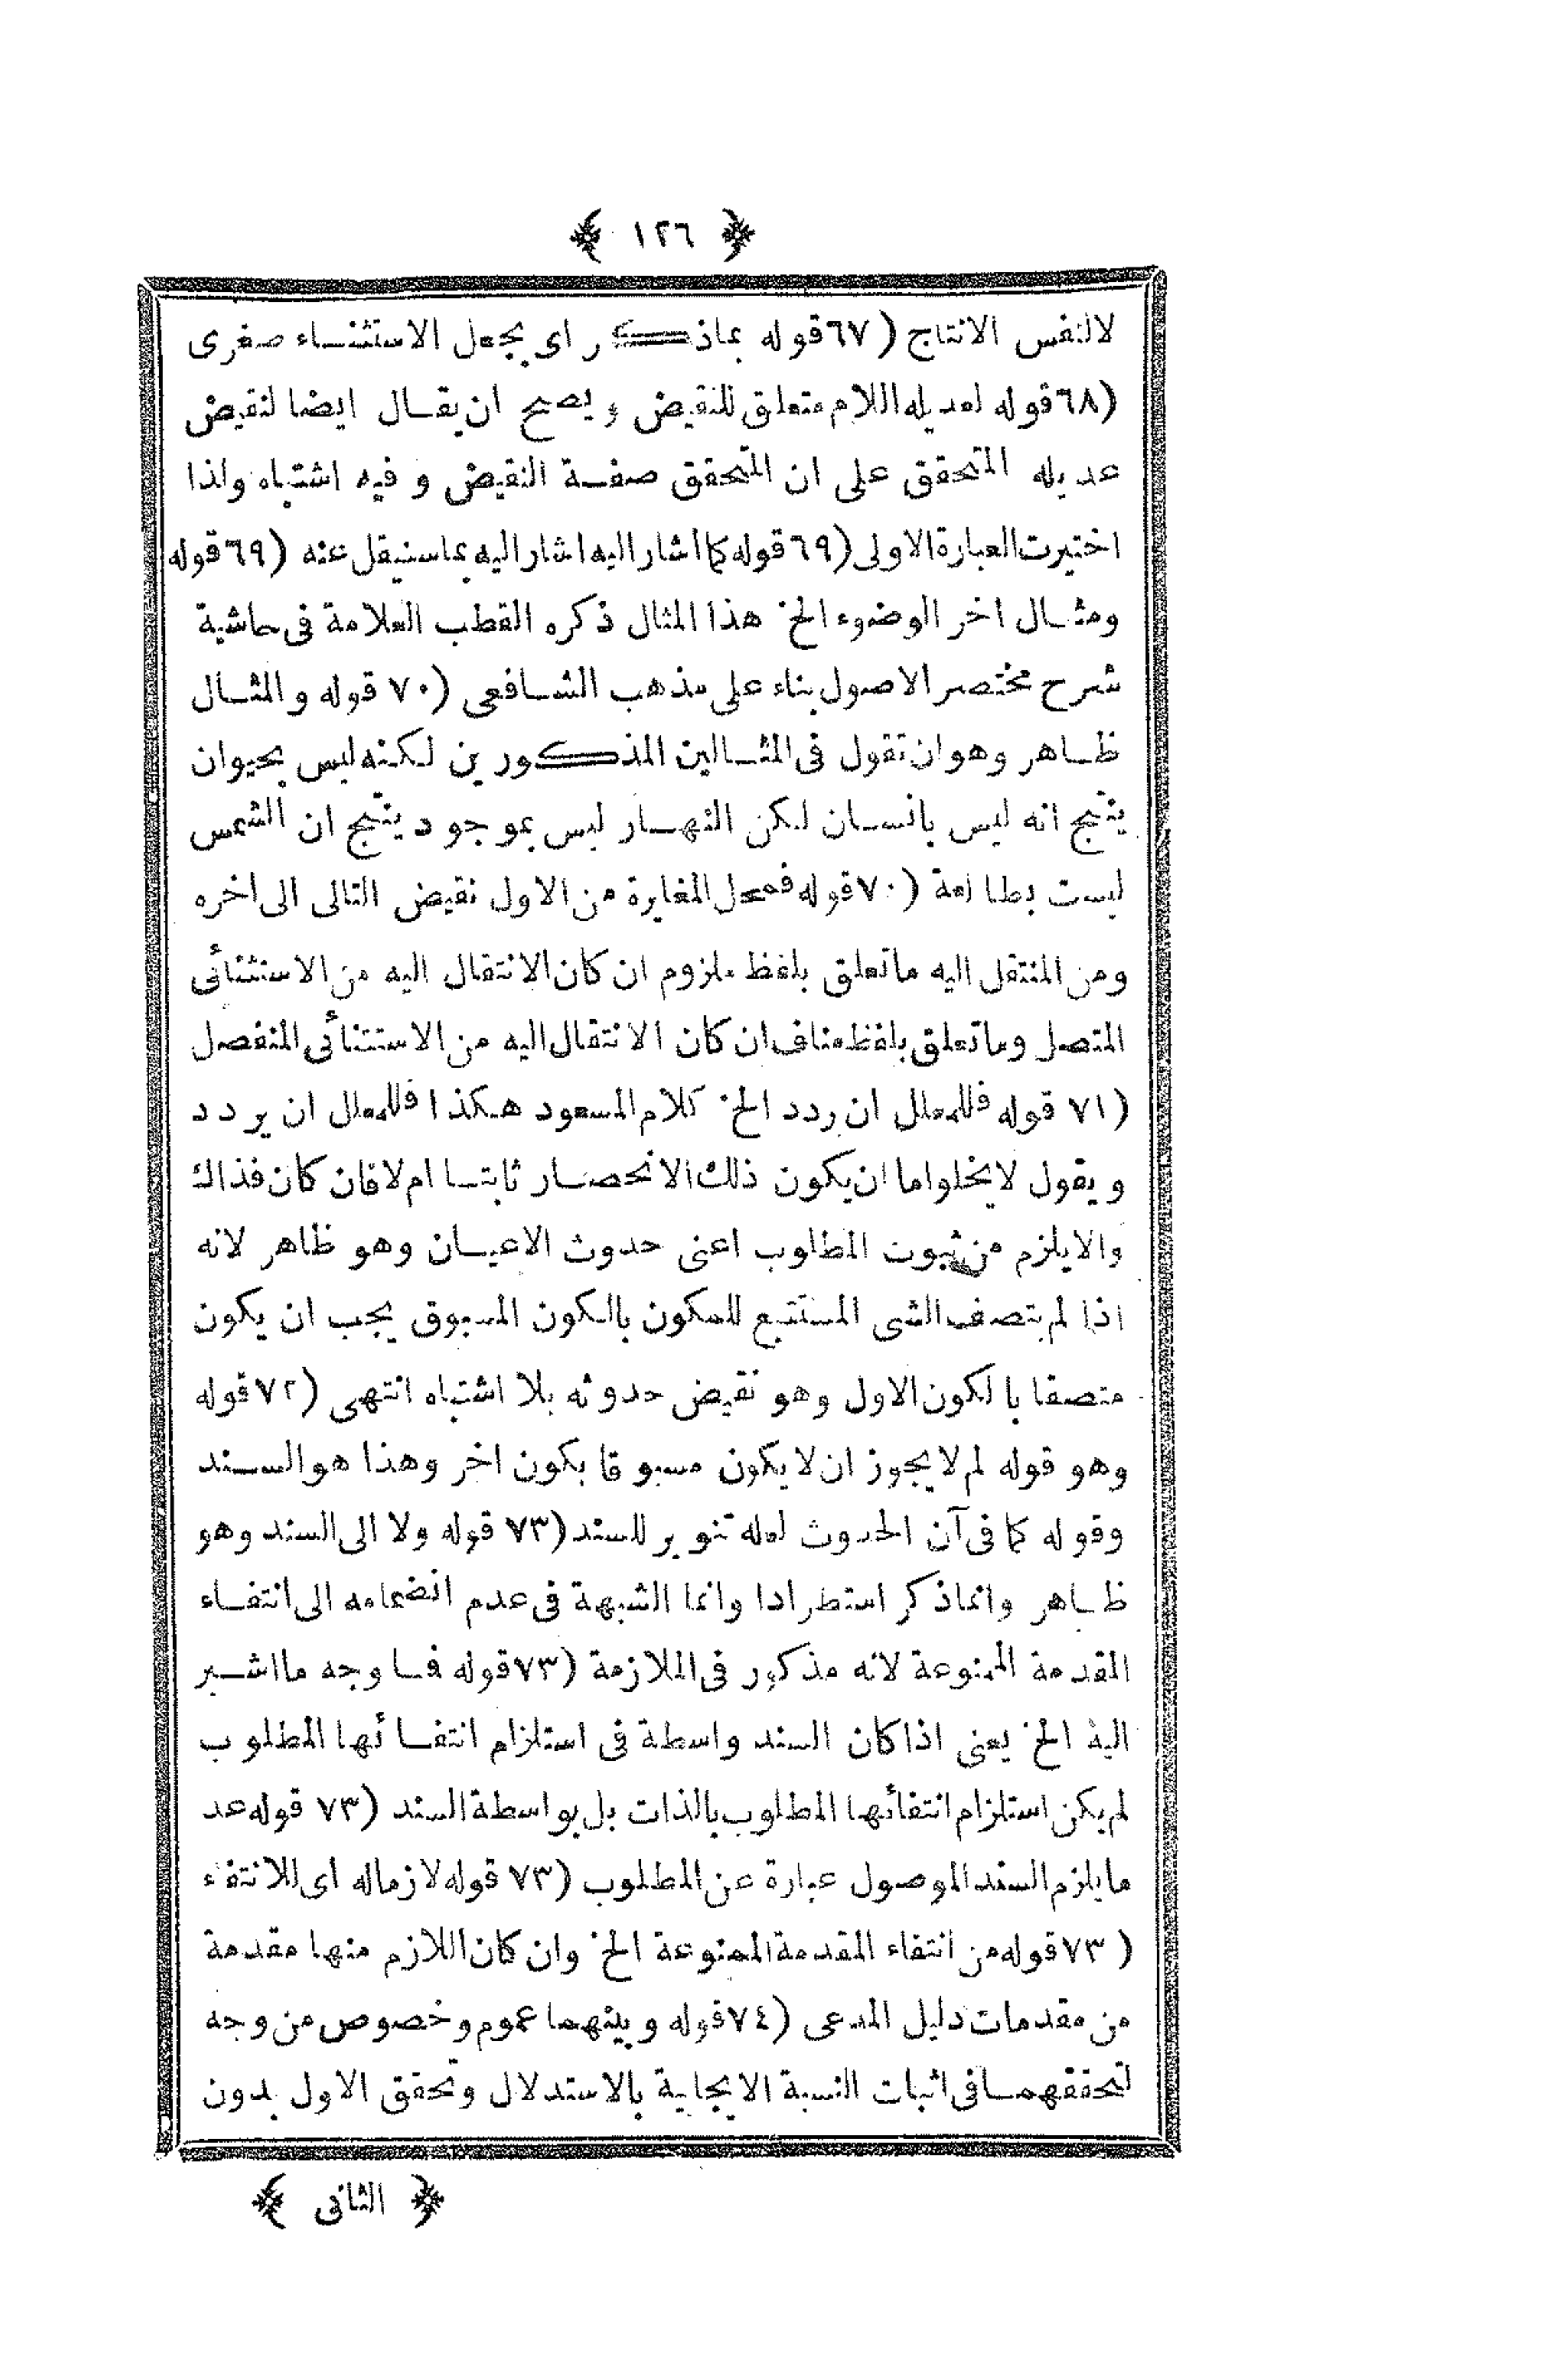 ﴿ ١٢٦ ﴾
لالنفس الانتاج (٦٧ قوله بماذكر اى بجعل الاستثناء صغرى
(٦٨ قوله لعديله اللام متعلق للنقيض ويصح ان يقال ايضا لنقيض
عديله المتحقق على ان المتحقق صفة النقيض وفيه اشتباه ولذا
اختيرت العبارة الاولى (٦٩ قوله كما اشار اليه اشار اليه بماسنيقل عنه (٦٩ قوله
ومثال اخر الوضوء الخ هذا المثال ذكره القطب العلامة فى حاشية
شرح مختصر الاصول بناء على مذهب الشافعى (٧٠ قوله والمثال
ظاهر وهو ان تقول فى المثالين المذكورين لكنه ليس بحيوان
ينتج انه ليس بانسان لكن النهار ليس بموجود ينتج ان الشمس
ليست بطالعة (٧٠ قوله فمحل المغايرة من الاول نقيض التالى الى اخره
ومن المنتقل اليه ماتعلق بلفظ ملزوم ان كان الانتقال اليه من الاستثنائى
المتصل وماتعلق بلفظ مناف ان كان الانتقال اليه من الاستثنائى المنفصل
(٧١ قوله فللمعلل ان ردد الخ كلام المسعود هكذا فللمعلل ان يردد
ويقول لايخلوا ما ان يكون ذلك الانحصار ثابتا ام لا فان كان فذاك
والايلزم من ثبوت المطلوب اعنى حدوث الاعيان وهو ظاهر لانه
اذا لم يتصف الشى المستتبع للمكون بالكون المسبوق يجب ان يكون
متصفا بالكون الاول وهو نقيض حدوثه بلا اشتباه انتهى (٧٢ قوله
وهو قوله لم لا يجوز ان لا يكون مسبوقا بكون اخر وهذا هو السند
وقوله كما فى آن الحدوث لعله تنوير للسند (٧٣ قوله ولا الى السند وهو
ظاهر وانماذكر استطرادا وانما الشبهة فى عدم انضمامه الى انتفاء
المقدمة الممنوعة لانه مذكور فى الملازمة (٧٣ قوله فما وجه مااشير
اليه الخ يعنى اذا كان السند واسطة فى استلزام انتفائها المطلوب
لم يكن استلزام انتفائها المطلوب بالذات بل بواسطة السند (٧٣ قوله عد
مايلزم السند الموصول عبارة عن المطلوب (٧٣ قوله لازماله اى للانتفاء
(٧٣ قوله من انتفاء المقدمة الممنوعة الخ وان كان اللازم منها مقدمة
من مقدمات دليل المدعى (٧٤ قوله وبينهما عموم وخصوص من وجه
لتحققهما فى اثبات النسبة الايجابية بالاستدلال وتحقق الاول بدون
﴿ الثانى ﴾